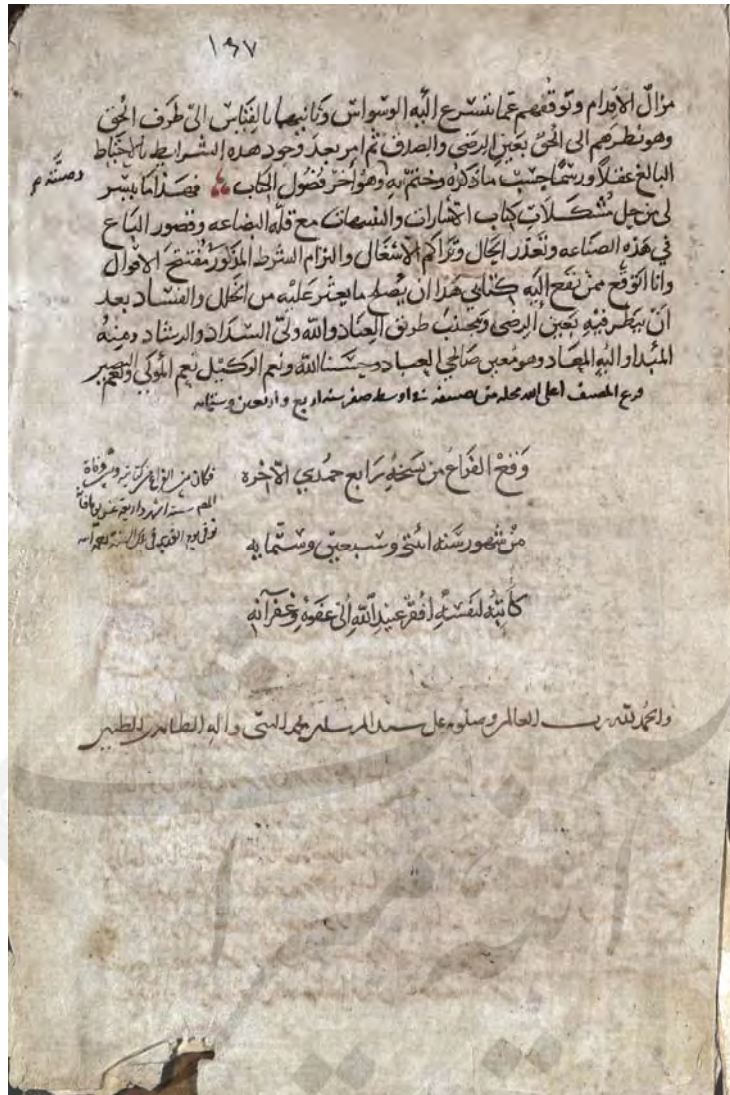 ١٩٧
مزال الاقدام وتوقفهم عما يتسرع اليه الوسواس وثانيهما بالقياس الى طرف الحق
وهو نظرهم الى الحق بعين الرضى والصدق ثم امر بعد وجود هذه الشرايط بالاحتياط
البالغ عقلا ودينا حسب ما ذكره وختم به وهو آخر فصول الكتاب فهذا ما تيسر
وصيته م
لي من حل مشكلات كتاب الاشارات والتنبيهات مع قلة البضاعه وقصور الباع
في هذه الصناعه وتعذر الحال وتراكم الاشغال والتزام الشرط المذكور مفتتح الاقوال
وانا اتوقع ممن يقع اليه كتابي هذا ان يصلح ما يعثر عليه من الخلل والفساد بعد
ان ينظر فيه بعين الرضى ويجتنب طريق العناد والله ولي السداد والرشاد ومنه
المبدا واليه المعاد وهو معين صالحي العباد وحسبنا الله ونعم الوكيل نعم المولى ونعم النصير
فرغ المصنف اعلى الله محله من تصنيفه في اواسط صفر سنة اربع واربعين وستمايه
وقع الفراغ من نسخه رابع جمدي الآخره
من شهور سنه اثنتي وسبعين وستمايه
كاتبه لنفسه افقر عبيد الله الى عفوه وغفرانه
فكان من الفراغ من كتابته وبين وفاة
المص ستة اشهر واربعة عشر يوما
توفي يوم الغدير في تلك السنة
والحمد لله رب العالمين وصلوته على سيد المرسلين محمد النبي واله الطاهرين الطيبين
آينه ميراث